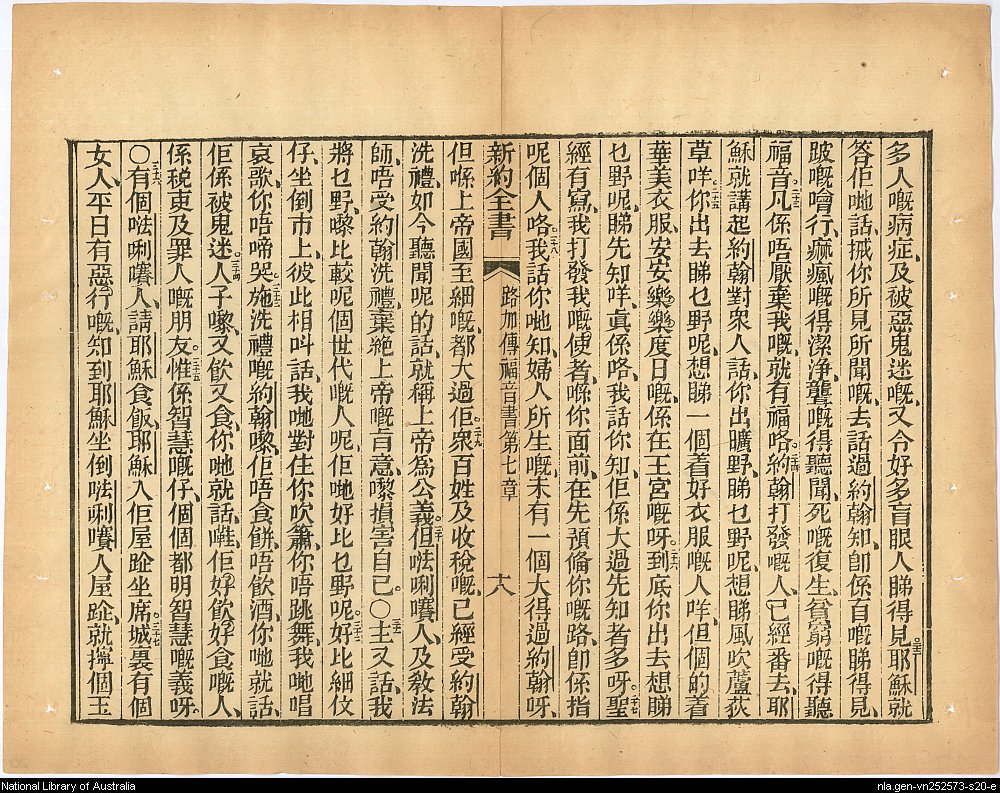 多人嘅病症、及被惡鬼迷嘅、又令好多盲眼人睇得見。二十二耶穌就
答佢哋話、掝你所見所聞嘅、去話過約翰知、卽係盲嘅睇得見、
跛嘅噲行、痲瘋嘅得潔淨、聾嘅得聽聞、死嘅復生、貧窮嘅得聽
福音。二十三凡係唔厭棄我嘅、就有福咯。二十四約翰打發嘅人、已經番去、耶
穌就講起約翰對衆人話、你出曠野、睇乜野呢、想睇風吹蘆荻
草咩。二十五你出去睇乜野呢、想睇一個着好衣服嘅人咩、但個的着
華美衣服、安安樂樂度日嘅、係在王宮嘅呀。二十六到底你出去想睇
乜野呢、睇先知咩、眞係咯、我話你知、佢係大過先知者多呀。二十七聖
經有寫、我打發我嘅使者、喺你面前、在先預備你嘅路、卽係指
呢個人咯。二十八我話你哋知、婦人所生嘅、未有一個大得過約翰呀、
新約全書 路加傳福音書第七章 十八
但喺上帝國至細嘅、都大過佢。二十九衆百姓及收稅嘅、已經受約翰
洗禮、如今聽聞呢的話、就稱上帝爲公義。三十但𠵽唎㘔人、及敎法
師、唔受約翰洗禮、棄絶上帝嘅旨意、嚟損害自己。〇三十一主又話、我
將乜野、嚟比較呢個世代嘅人呢、佢哋好比乜野呢。三十二好比細伩
仔、坐倒市上、彼此相呌話、我哋對住你吹簫、你唔跳舞、我哋唱
哀歌、你唔啼哭。三十三施洗禮嘅約翰嚟、佢唔食餅、唔飮酒、你哋就話、
佢係被鬼迷。三十四人子嚟、又飮又食、你哋就話、嗱、佢好飮好食嘅人、
係稅吏及罪人嘅朋友。三十五惟係智慧嘅仔、個個都明智慧嘅義呀。
〇三十六有個𠵽唎㘔人、請耶穌食飯、耶穌入佢屋企坐席。三十七城裏有個
女人、平日有惡行嘅、知到耶穌坐倒𠵽唎㘔人屋企、就擰個玉
National Library of Australia
nla.gen-vn252573-s20-e